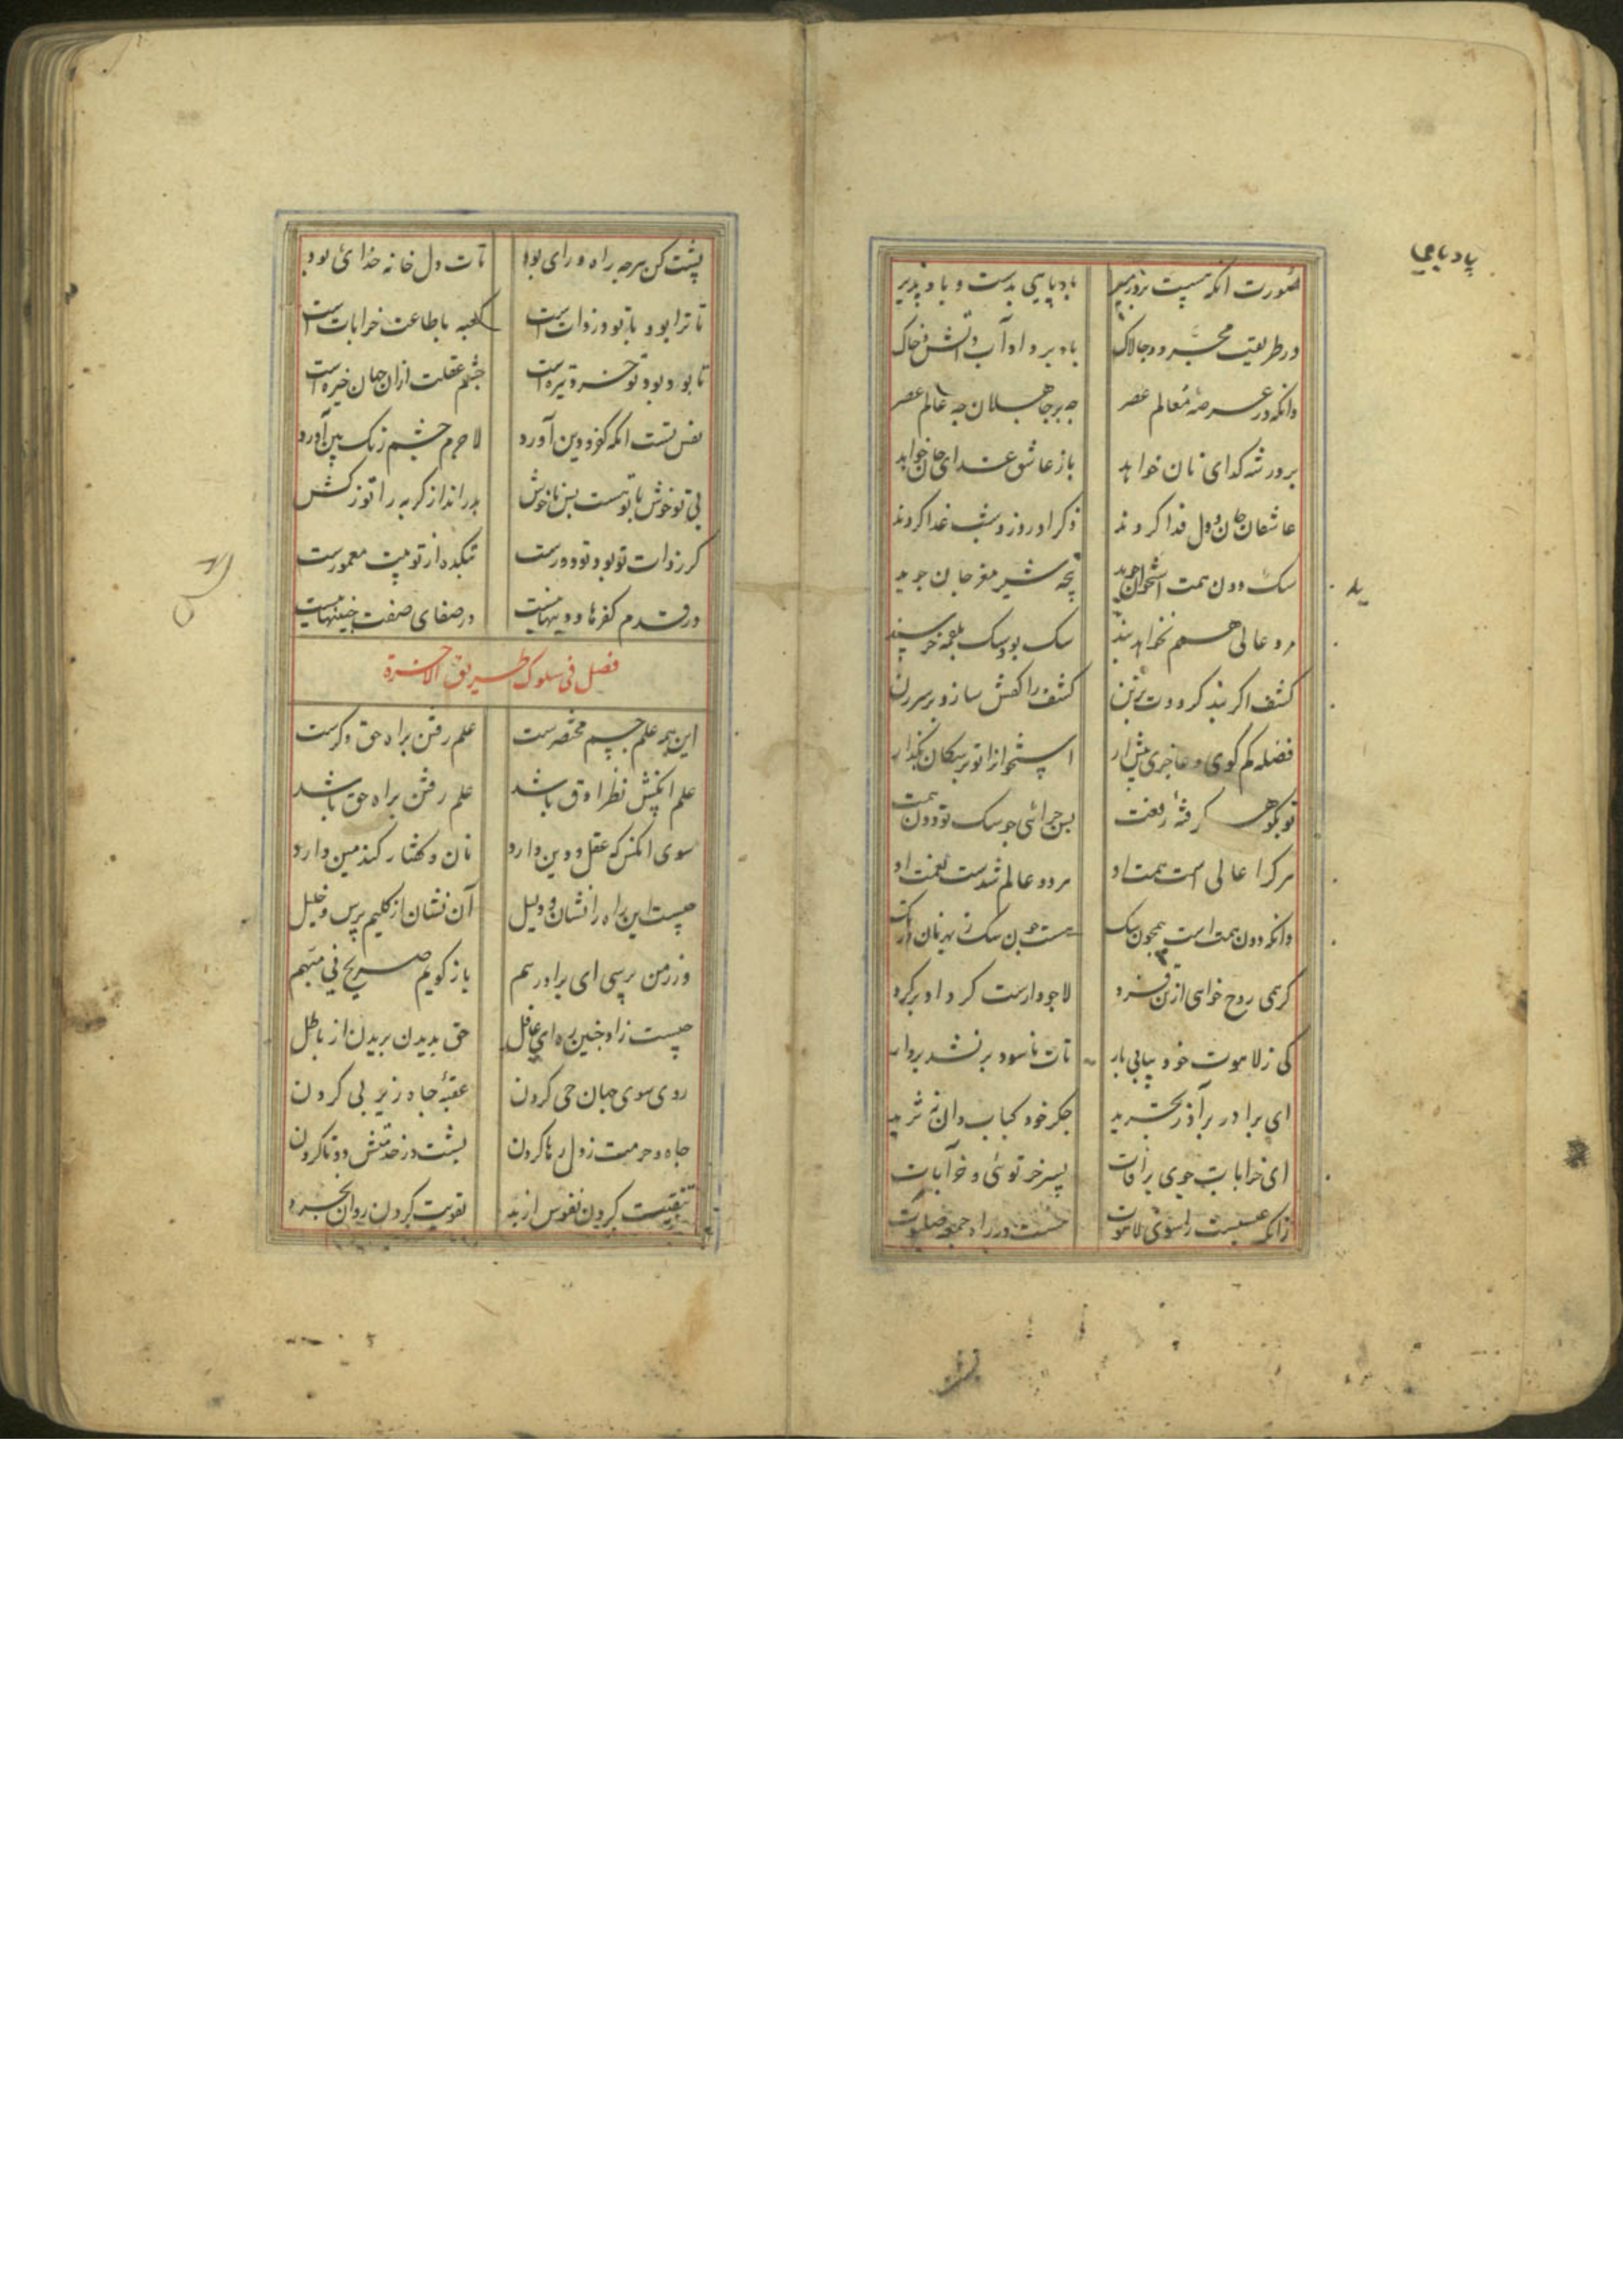 پادیایی
صورت آنکه هست بر در میر بادپایی بدست و باد پذیر
در طریقت مجرد و چالاک باد برد او آب و آتش و خاک
وانکه در عرصهٔ معالم عصر چه بر جاهلان چه عالم عصر
بر در شه کدای نان خواهد باز عاشق غذای جان خواهد
عاشقان جان و دل فدا کردند ذکر او روز و شب غدا کردند
سک دون همت استخوان جوید پنجه شیر مغز جان جوید
مرد عالی همم نخواهد بند سک بود سک بلقمه خرسند
کشف اکر بند کرددت بر تن کشف را کفش ساز و بر سر زن
فضله کم کوی و عاجزی پیش آر استخوان را تو بر سکان بکذار
تو بکوهر کرفتهٔ رفعت پس چرائی چو سک تو دون همت
هر کرا عالی است همت او هر دو عالم شدست نعمت او
وانکه دون همت است همچون سک هست چون سک ز بهر نان در تک
کر همی روح خواهی از تن فرد لا چو دارست کرد او بر کرد
کی ز لاهوت خود بیابی بار تات ناسود بر نشد بر دار
ای برادر بر آذر تجرید جکر خود کباب دان نه ثرید
ای خرابات جوی پر آفات پسر خر توئی و خر آبات
زانکه عیسیت را سوی لاهوت هست در راه
پشت کن هرچه راه و رای بود تات دل خانه خدای بود
تا ترا بود با تو در ذات است کعبه با طاعت خرابات است
تا بود بود تو خرد تیره است چشم عقلت ازان جهان خیره است
نفس تست آنکه کفر و دین آورد لاجرم چشم رنک بین آورد
بی تو خوش با تو هست بس ناخوش بدر انداز کربه را تو ز کش
کر ز ذات تو بود تو دورست بتکده از تو بیت معمورست
در قدم کفرها و دینها نیست در صفای صفت چنینها نیست
فصل فی سلوک طریق الآخرة
این همه علم جسم مختصرست علم رفتن براه حق دکرست
علم آنکش نظر ادق باشد علم رفتن براه حق باشد
سوی آنکس که عقل و دین دارد نان و کفتار کندمین دارد
چیست این راه را نشان و دلیل آن نشان از کلیم پرس و خلیل
ور ز من پرسی ای برادر هم باز کویم صریح نی مبهم
چیست زاد چنین ره ای غافل حق بدیدن بریدن از باطل
روی سوی جهان حی کردن عقبهٔ جاه زیر پی کردن
جاه و حرمت ز دل رها کردن پشت در خدمتش دوتا کردن
تنقیت کردن نفوس از بد تقویت کردن روان بخرد